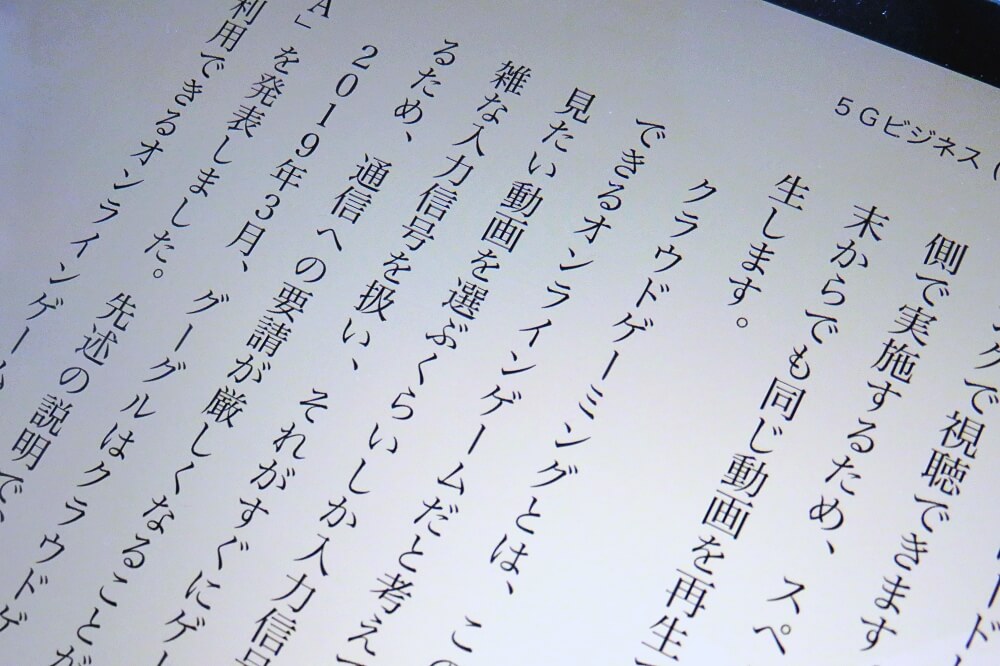 5Gビジネス (
ード
で視聴できます
側で実施するため、スペ
末からでも同じ動画を再生
生します。
クラウドゲーミングとは、この
できるオンラインゲームだと考えて
見たい動画を選ぶくらいしか入力信号
雑な入力信号を扱い、それがすぐにゲー
るため、通信への要請が厳しくなることが
2019年3月、グーグルはクラウドゲ
A」を発表しました。先述の説明で、
利用できるオンラインゲーム